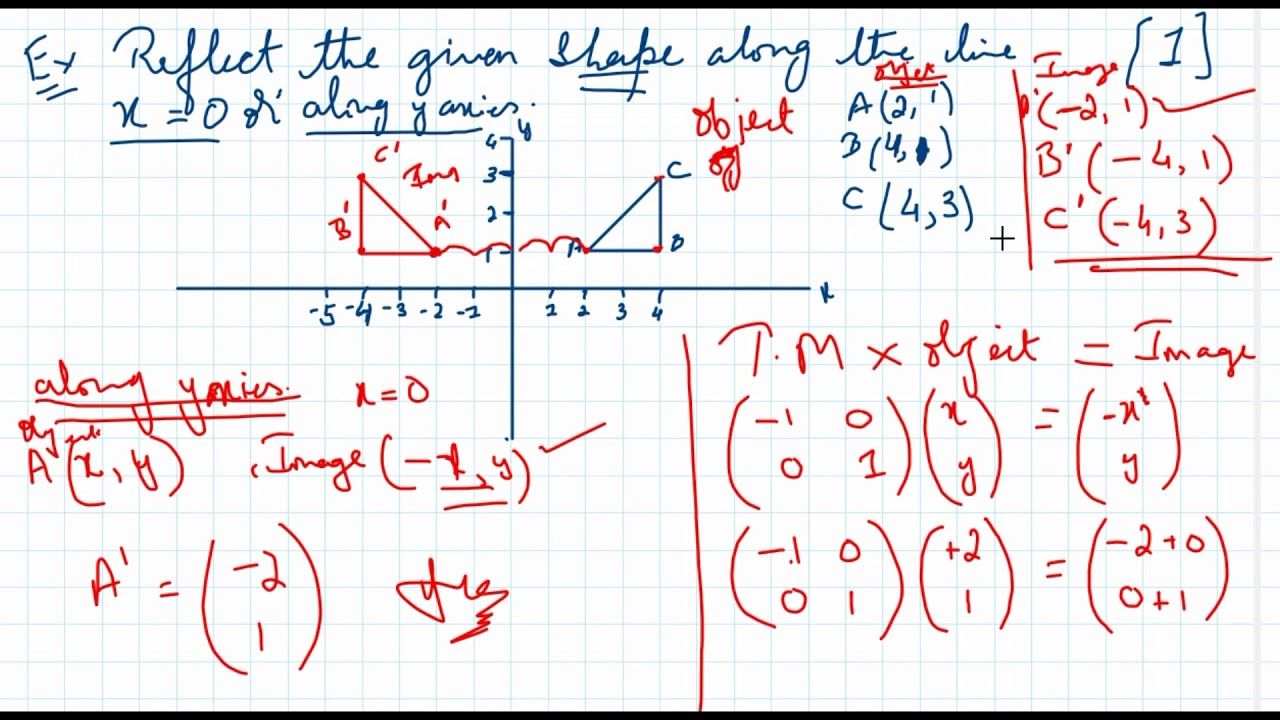 Ex Reflect the given shape along the line [1]
x = 0 or along y axies.
object
object
A(2, 1)
B(4, 1)
C(4, 3)
Image
A'(-2, 1)
B'(-4, 1)
C'(-4, 3)
y
4
3
2
1
C'
B'
A'
A
B
C
-5 -4 -3 -2 -1 1 2 3 4 x
along y axies. x = 0
object
A(x, y) Image (-x, y)
A' = (-2
1)
T.M × object = Image
(-1 0
0 1) (x
y) = (-x
y)
(-1 0
0 1) (+2
1) = (-2+0
0+1)